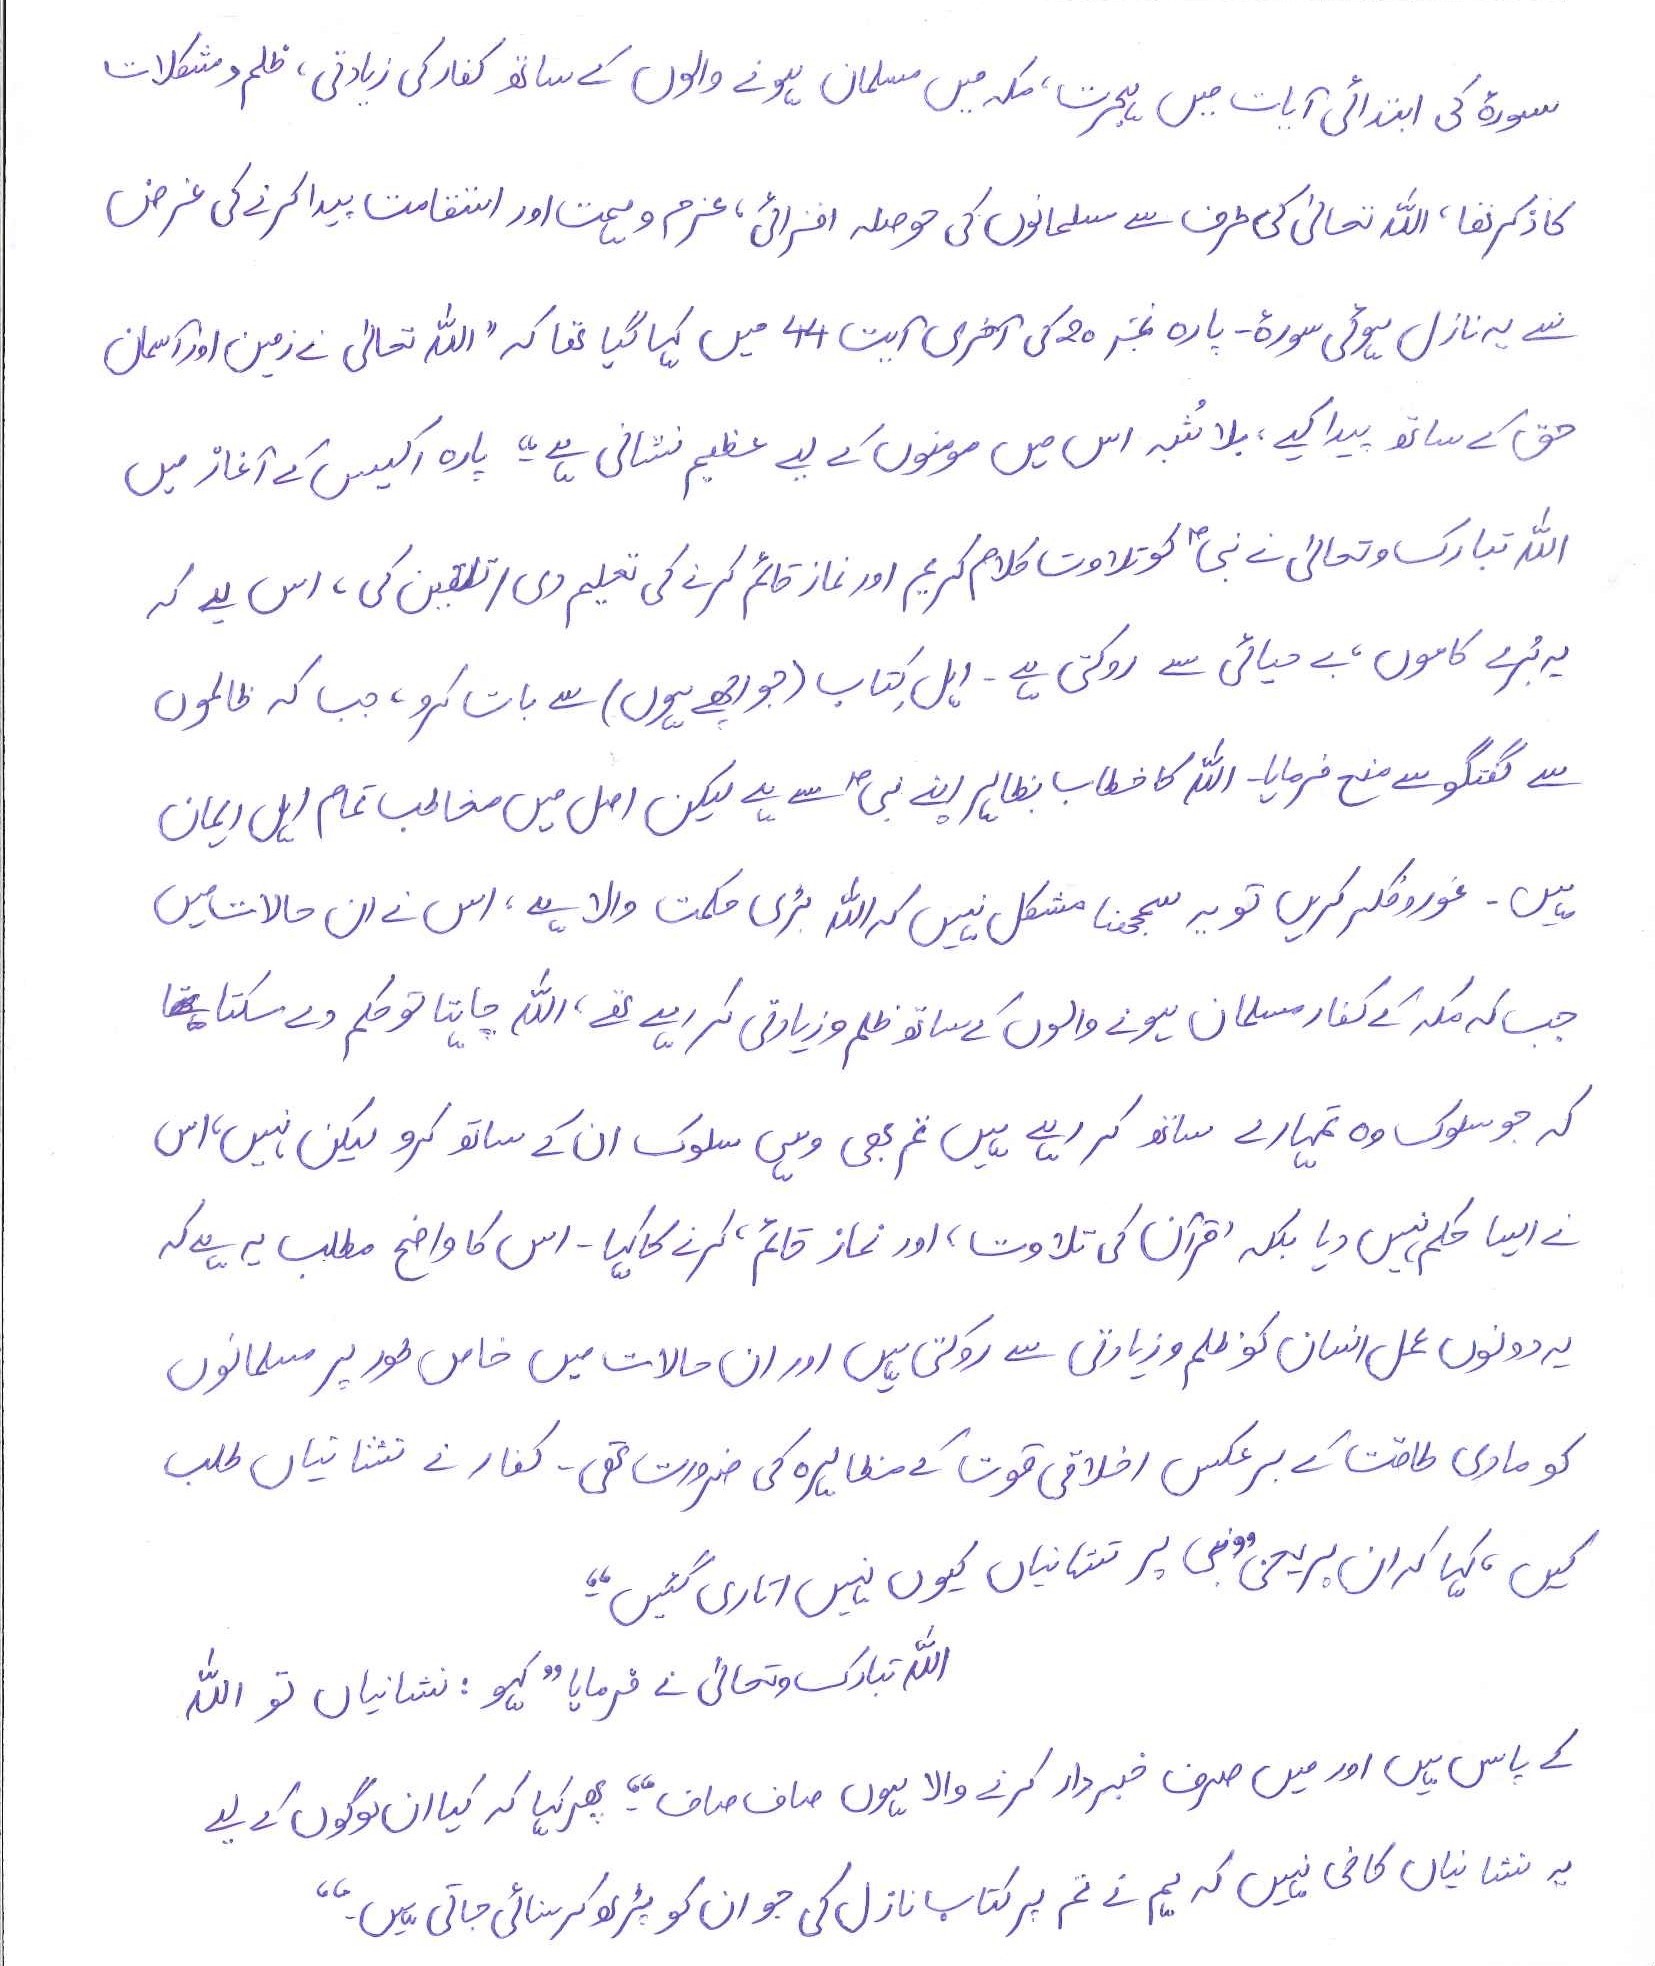 سورۃ کی ابتدائی آیات میں ہجرت، مکہ میں مسلمان ہونے والوں کے ساتھ کفار کی زیادتی، ظلم و مشکلات
کا ذکر تھا، اللہ تعالیٰ کی طرف سے مسلمانوں کی حوصلہ افزائی، عزم و ہمت اور استقامت پیدا کرنے کی غرض
سے یہ نازل ہوئی سورۃ۔ پارہ نمبر 20 کی آخری آیت 44 میں کہا گیا تھا کہ "اللہ تعالیٰ نے زمین اور آسمان
حق کے ساتھ پیدا کیے، بلا شُبہ اس میں مومنوں کے لیے عظیم نشانی ہے۔" پارہ اکیس کے آغاز میں
اللہ تبارک و تعالیٰ نے نبیؐ کو تلاوت کلام کریم اور نماز قائم کرنے کی تعلیم دی / تلقین کی، اس لیے کہ
یہ بُرے کاموں، بے حیائی سے روکتی ہے۔ اہلِ کتاب (جو اچھے ہوں) سے بات کرو، جب کہ ظالموں
سے گفتگو سے منع فرمایا۔ اللہ کا خطاب بظاہر اپنے نبیؐ سے ہے لیکن اصل میں مخاطب تمام اہل ایمان
ہیں۔ غور و فکر کریں تو یہ سمجھنا مشکل نہیں کہ اللہ بڑی حکمت والا ہے، اس نے ان حالات میں
جب کہ مکہ کے کفار مسلمان ہونے والوں کے ساتھ ظلم و زیادتی کر رہے تھے، اللہ چاہتا تو حکم دے سکتا تھا
کہ جو سلوک وہ تمہارے ساتھ کر رہے ہیں تم بھی وہی سلوک ان کے ساتھ کرو لیکن نہیں، اس
نے ایسا حکم نہیں دیا بلکہ 'قرآن کی تلاوت، اور نماز قائم' کرنے کا کہا۔ اس کا واضح مطلب یہ ہے کہ
یہ دونوں عمل انسان کو ظلم و زیادتی سے روکتی ہیں اور ان حالات میں خاص طور پر مسلمانوں
کو مادی طاقت کے برعکس اخلاقی قوت کے مظاہرہ کی ضرورت تھی۔ کفار نے نشانیاں طلب
کیں، کہا کہ ان پر یعنی "نبی پر نشانیاں کیوں نہیں اتاری گئیں"۔
اللہ تبارک و تعالیٰ نے فرمایا "کہو: نشانیاں تو اللہ
کے پاس ہیں اور میں صرف خبردار کرنے والا ہوں صاف صاف"۔ پھر کہا کہ کیا ان لوگوں کے لیے
یہ نشانیاں کافی نہیں کہ ہم نے تم پر کتاب نازل کی جو ان کو پڑھ کر سنائی جاتی ہیں۔"